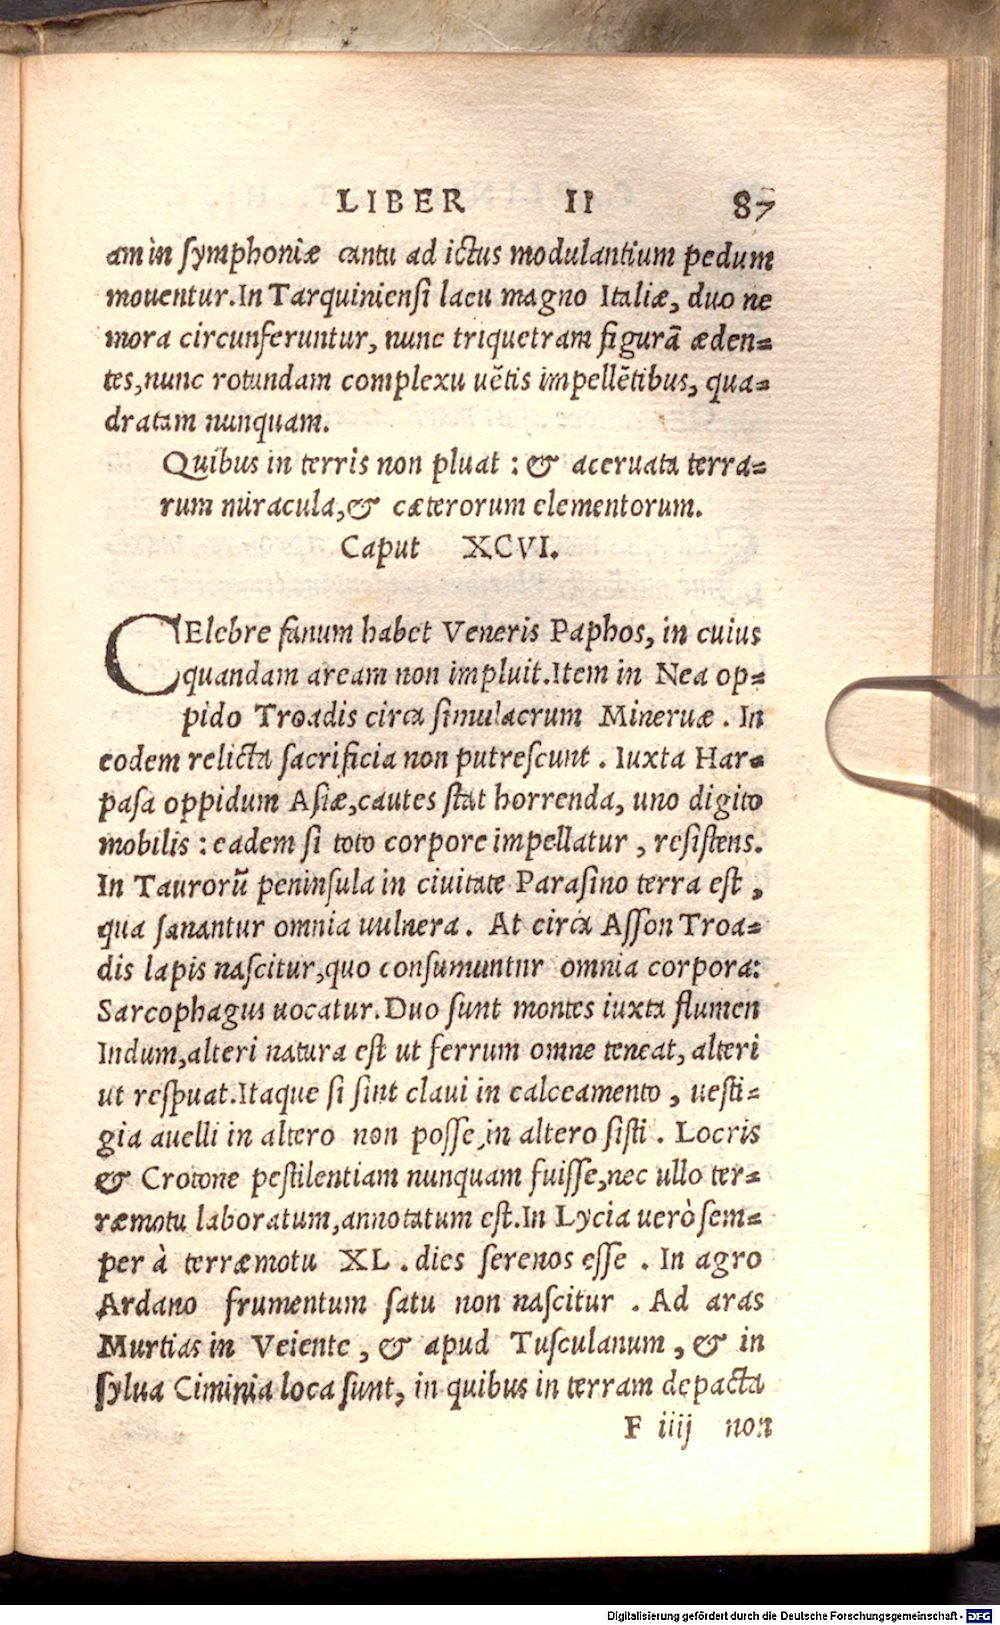 LIBER II 87
am in symphoniæ cantu ad ictus modulantium pedum
mouentur.In Tarquiniensi lacu magno Italiæ, duo ne
mora circunferuntur, nunc triquetram figurā æden=
tes,nunc rotundam complexu uētis impellētibus, qua=
dratam nunquam.
Quibus in terris non pluat : & aceruata terra=
rum miracula,& cæterorum elementorum.
Caput XCVI.
CElebre fanum habet Veneris Paphos, in cuius
quandam aream non impluit.Item in Nea op=
pido Troadis circa simulacrum Mineruæ . In
eodem relicta sacrificia non putrescunt . Iuxta Har=
pasa oppidum Asiæ,cautes stat horrenda, uno digito
mobilis : eadem si toto corpore impellatur , resistens.
In Taurorū peninsula in ciuitate Parasino terra est ,
qua sanantur omnia uulnera. At circa Asson Troa=
dis lapis nascitur,quo consumuntur omnia corpora:
Sarcophagus uocatur.Duo sunt montes iuxta flumen
Indum,alteri natura est ut ferrum omne teneat, alteri
ut respuat.Itaque si sint claui in calceamento , uesti=
gia auelli in altero non posse,in altero sisti . Locris
& Crotone pestilentiam nunquam fuisse,nec ullo ter=
ræmotu laboratum,annotatum est.In Lycia uerò sem=
per à terræmotu XL . dies serenos esse . In agro
Ardano frumentum satu non nascitur . Ad aras
Murtias in Veiente , & apud Tusculanum , & in
sylua Ciminia loca sunt, in quibus in terram depacta
F iiij non
Digitalisierung gefördert durch die Deutsche Forschungsgemeinschaft - DFG